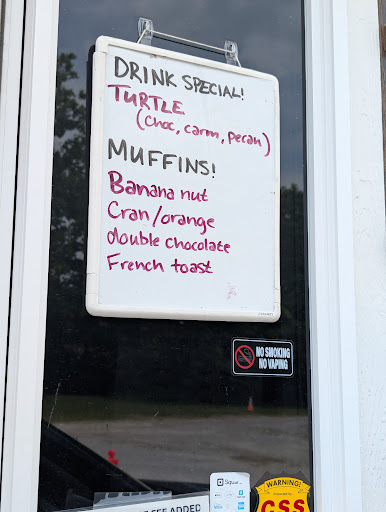 DRINK SPECIAL!
TURTLE
(choc, carm, pecan)
MUFFINS!
Banana nut
Cran/orange
double chocolate
French toast
NO SMOKING
NO VAPING
Square
WARNING!
CSS
FEE ADDED